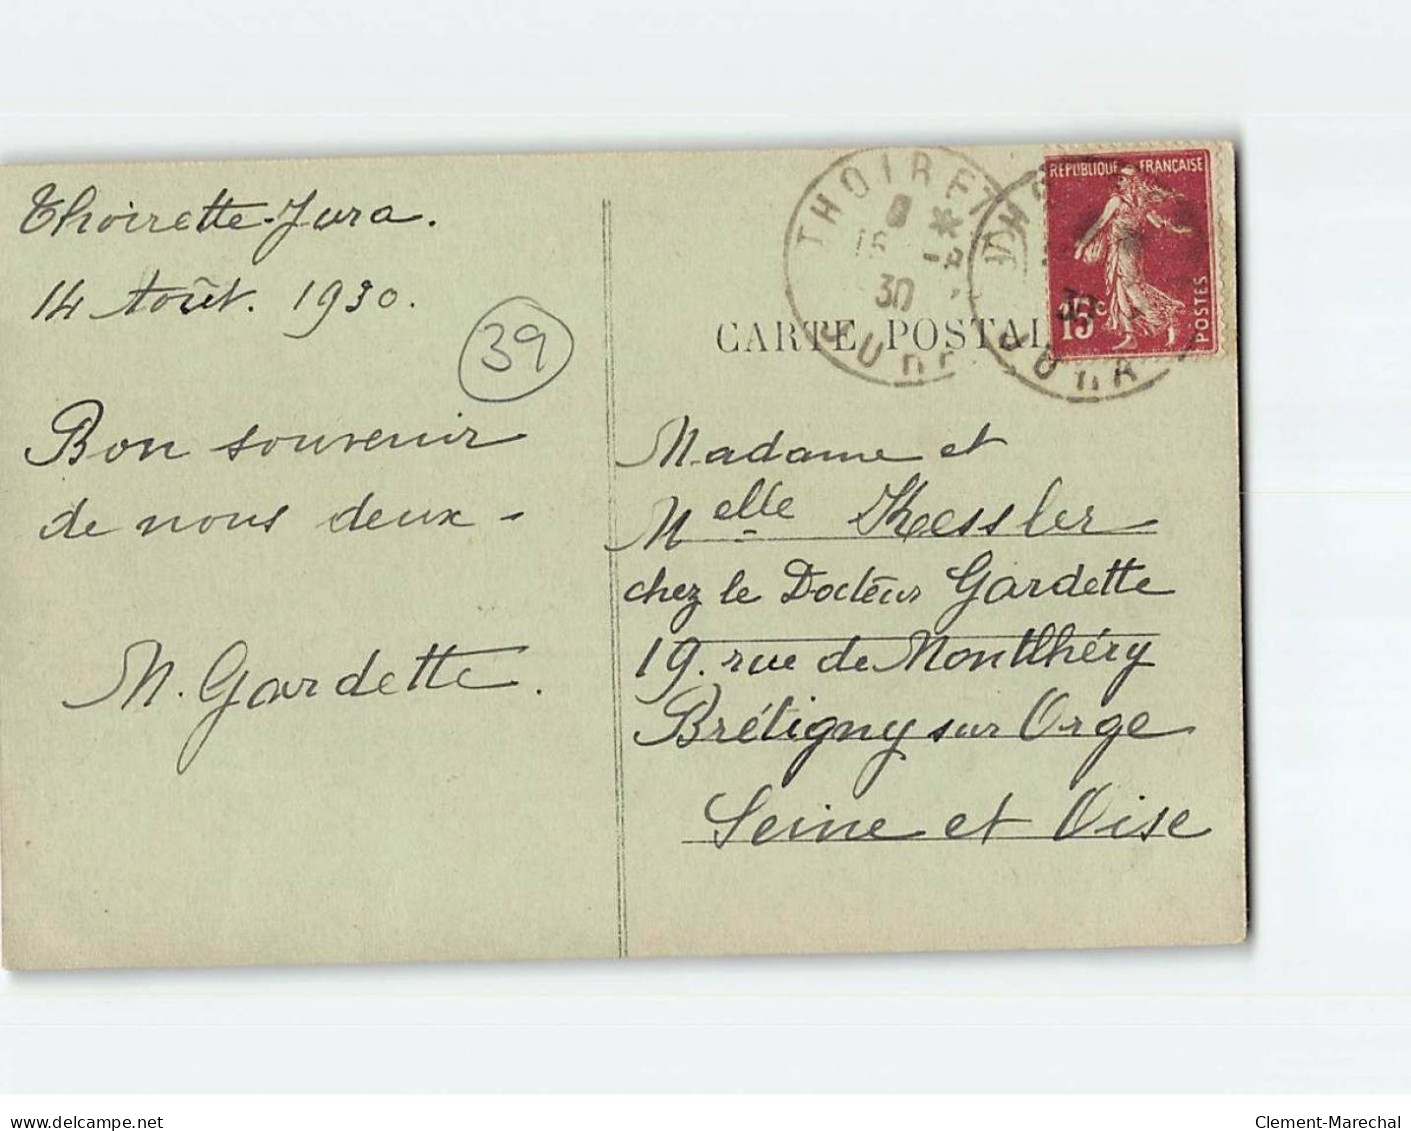 Thoirette-Jura.
14 Août. 1930.
39
Bon souvenir
de nous deux -
M. Gardette.
THOIRET
15
30
JURA
REPUBLIQUE FRANÇAISE
15c
POSTES
30
JURA
CARTE POSTAL
Madame et
Melle Kessler
chez le Docteur Gardette
19. rue de Montlhéry
Brétigny sur Orge
Seine et Oise
delcampe.net
Clement-Marechal